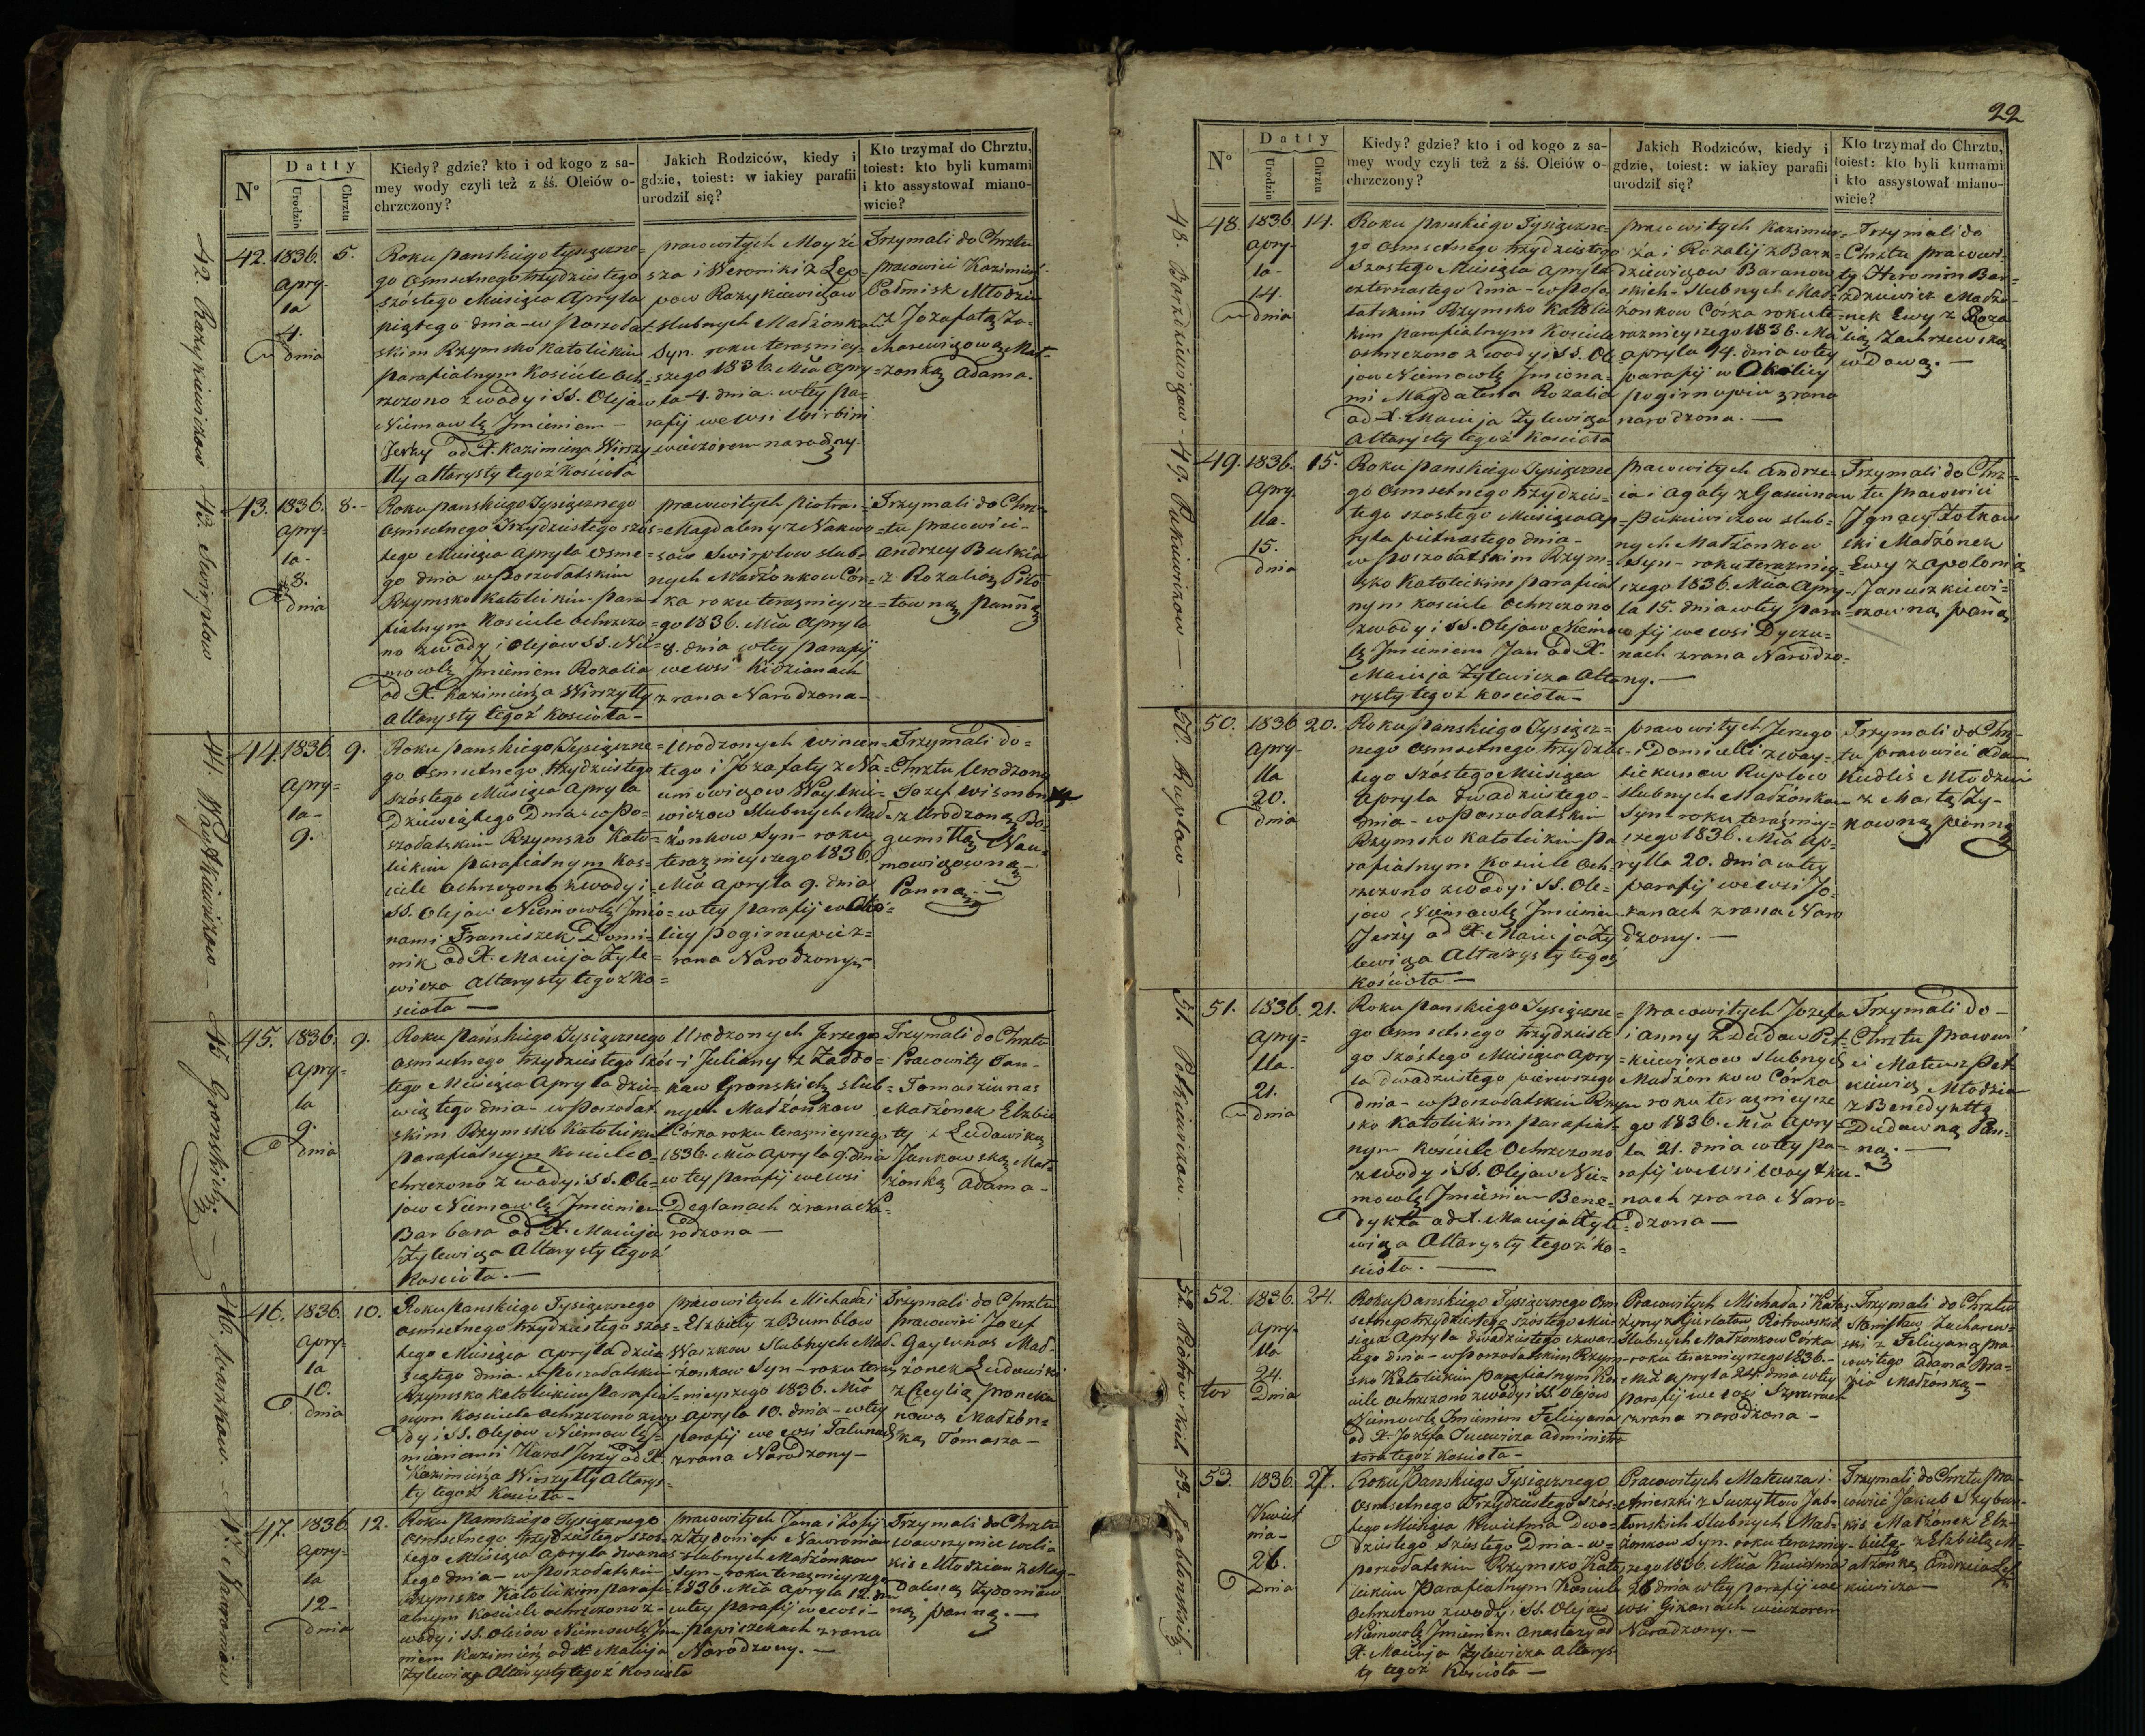 22
N°
Datty
Urodzin
Chrztu
Kiedy? gdzie? kto i od kogo z sa-
mey wody czyli też z śś. Oleiów o-
chrzczony?
Jakich Rodziców, kiedy i
gdzie, toiest: w iakiey parafii
urodził się?
Kto trzymał do Chrztu,
toiest: kto byli kumami
i kto assystował miano-
wicie?
42.
1836.
Apry-
la
4.
dnia
5.
Roku panskiego tysiączne-
go osmsetnego trzydziestego
szóstego Miesiąca Apryla
piątego dnia w Poszodat-
skim Rzymsko Katolickim
parafialnym Kościele Och-
rzczono z wody i SS. Olejow
Niemowlę Jmieniem
Jerzy od X. Kazimierza Wirszy
łły altarysty tegoż Kościoła
pracowitych Moyże
sza i Weroniki z Lep-
pow Razykiewiczow
slubnych Małżonkow
Syn. roku terazniey-
szego 1836. Mca Apry-
la 4. dnia. w tey pa-
rafij we wsi
wieczorem narodzny.
Trzymali do Chrztu
pracowici Kazimierz
Młodzian
z Jozafatą
Mał-
żonką Adama.
43.
1836.
Apry-
la-
8.
dnia
8.-
Roku panskiego Tysiącznego
Osmsetnego Trzydziestego szos-
tego Miesiąca Apryla Osme-
go dnia w Poszodatskim
Rzymsko Katolickim para-
fialnym Kosciele ochrzczo-
no z wody i Olejow SS. Nie-
mowlę Jmieniem Rozalia
od X. Kazimierza Wirszyłły
Altarysty tegoż Kościoła-
pracowitych Piotra i
Magdaleny z
Swirplow slub-
nych Małżonkow Cór-
ka roku teraznieysze-
go 1836. Mca Apryla
8. dnia w tey parafij
we wsi Kidzianach
z rana Narodzona-
Trzymali do Chrz-
tu pracowici-
Andrzey Butkie
z Rozalią
panną
44.
1836.
Apry-
la-
9.
9.
Roku panskiego Tysiączne-
go Osmsetnego trzydziestego
szóstego Miesiąca Apryla
Dziewiątego Dnia w Po-
szodatskim Rzymsko Kato-
lickim parafialnym Koś-
ciele ochrzczono z wody i
SS. Olejow Niemowlę Jmio-
nami Franciszek Domi-
nik od X. Macieja Żyle-
wicza Altarysty tegoż Ko-
scioła —
Urodzonych Wincen-
tego i Jozafaty z Na-
umowiczow Woytkie-
wiczow Slubnych Mał-
żonkow Syn- roku
teraznieyszego 1836.
Mca Apryla 9. dnia
w tey parafij w Oko-
licy Pogirnupiu z-
rana Narodzony-
Trzymali do-
Chrztu Urodzony
Jozef
z Urodzoną Bo-
gumiłłą Nau-
mowiczowną
Panną.
45.
1836.
Apry-
la
9.
dnia
9.
Roku Pańskiego Tysiącznego
osmsetnego trzydziestego szós-
tego Miesiąca Apryla dzie-
wiątego dnia- w Poszodat-
skim Rzymsko Katolickim
parafialnym Kosciele o-
chrzczono z wody i SS. Ole-
jow Niemowlę Jmieniem
Barbara od X. Macieja
Żylewicza Altarysty tegoż
Kościoła.—
Urodzonych Jerzego
i Julianny z
Gronskich slub-
nych Małżonkow
Córka roku teraznieyszego
1836. Mca Apryla 9. dnia
w tey parafij we wsi
Deglanach z rana Na-
rodzona—
Trzymali do Chrztu
Pracowity
Tomaszunas
Małżonek Elzbie
ty z Ludowiką
Jankowską Mał-
żonką Adama-
46.
1836.
Apry-
la
10.
dnia
10.
Roku panskiego Tysiącznego
Osmsetnego trzydziestego szos-
tego Miesiąca Apryla dzie-
siątego dnia- w Poszodatskim
Rzymsko Katolickim parafial-
nym Kosciele ochrzczono z wo-
dy i SS. Olejow Niemowlę J-
mionami Karol Jerzy od X.
Kazimierza Wirszyłły Altarys-
ty tegoż Kościoła-
pracowitych Michała i
Elzbiety z Bumblow
Waszkow Slubnych Mał-
żonkow Syn- roku teraz
nieyszego 1836. Mca
Apryla 10. dnia- w tey
parafij we wsi
z rana Narodzony—
Trzymali do Chrztu
pracowici Jozef
Mał-
żonek Ludowiki
z Cecylią
Małżon-
ką Tomasza—
47.
1836
Apry-
la
12-
dnia
12.
Roku Panskiego Tysiącznego
Osmsetnego trzydziestego szos-
tego Miesiąca Apryla dwanas
tego dnia- w Poszodatskim
Rzymsko Katolickim parafi-
alnym Kosciele ochrzczono z-
wody i SS. Olejow Niemowlę Jm-
niem Kazimierz od X. Macieja
Żylewicza Altarysty tegoż Kościoła
pracowitych Jana i Zofij
z
slubnych Małżonkow
Syn- roku teraznieyszego
1836. Mca Apryla 12. dn
w tey parafij we wsi-
z rana
Narodzony.—
Trzymali do Chrztu
Wawrzyniec
Młodzian z Mag-
daleną
ną panną.—
42. Razykiewiczow
43. Swirplow
44. Woytkiewiczow-
45 Gronskich-
46. Waszkow.-
48.
1836.
Apry-
la-
14.
dnia
14.
Roku panskiego Tysiączne-
go osmsetnego trzydziestego
Szostego Miesiąca Apryla
czternastego Dnia- w Poszo
datskim Rzymsko Katolic
kim parafialnym Kosciele
ochrzczono z wody i SS. Ole
jow Niemowlę Jmiona-
mi Magdalena Rozalia
od X. Macieja Żylewicza
Altarysty tegoż Kościoła
pracowitych Kazimier-
za i Rozalij z Barz-
dziewiczow Baranow
skich- Slubnych Mał-
żonkow Córka roku te-
raznieyszego 1836. Mca
Apryla 14. dnia w tey
parafij w Okolicy
Pogirnupiu z rana
narodzona.—
Trzymali do
Chrztu pracowi-
ty Heronim Bar-
zdziewicz Małżo-
nek Ewy z Roza
lią Zachrzewską
wdową.—
49.
1836.
Apry.
lla-
15.
dnia
15.
Roku panskiego Tysiączne
go Osmsetnego trzydzies-
tego szostego Miesiąca Ap-
ryla pietnastego dnia-
w Poszodatskim Rzym-
sko Katolickim parafial
nym kosciele Ochrzczono
z wody i SS. Olejow Niemow
lę Jmieniem Jan od X.
Macieja Żylewicza Alta-
rysty tegoż kościoła-
pracowitych Andrze-
ia i Agaty z
slub-
nych Małżonkow
Syn- roku teraznie-
szego 1836. Mca Apry-
la 15. dnia w tey para-
fij we wsi
nach z rana Narodzo-
ny.—
Trzymali do Chrz-
tu pracowici
Jgnacy Zołkow
ski Małżonek
Ewy z Apolonią
Januszkiewi-
czowną panną
50.
1836
Apry-
lla
20.
dnia
20.
Roku panskiego Tysiącz-
nego osmsetnego trzydzies-
tego szóstego Miesiąca
Apryla dwadziestego-
dnia- w Poszodatskim
Rzymsko Katolickim pa-
rafialnym Kosciele Och-
rzczono z wody i SS. Ole-
jow Niemowlę Jmieniem
Jerży od X. Macieja Ży
lewicza Altarysty tegoż
Kościoła—
pracowitych Jerzego
i Danielli z Woy-
Ruplow
slubnych Małżonkow
Syn roku teraznie-
szego 1836. Mca Ap-
rylla 20. dnia w tey
parafij we wsi Jo-
kanach z rana Naro
dzony.—
Trzymali do Chrz-
tu pracowici Adam
Kudlis Młodzian
z Martą Zy-
nowną panną
51.
1836.
Apry-
lla.
21.
dnia
21.
Roku panskiego Tysiączne-
go osmsetnego trzydzieste
go szóstego Miesiąca Apry-
la dwadziestego pierwszego
dnia- w Poszodatskim Rzym
sko Katolickim parafial-
nym kościele Ochrzczono
z wody i SS. Olejow Nie-
mowlę Jmieniem Bene-
dykta od X. Macieja Żyle-
wicza Altarysty tegoż Ko-
scioła.—
pracowitych Jozefa
i Anny z Dudow Pet-
kiewiczow slubnych
Małżonkow Córka
roku teraznieysze
go 1836. Mca Apry-
la 21. dnia w tey pa-
rafij we wsi Woytku-
nach z rana Naro-
dzona—
Trzymali do-
Chrztu pracowi
ci Mateusz Pet-
kiewicz Młodzian
z Benedyktą
Dudowną Pan-
ną.—
52.
1836.
Apry-
lla
24.
Dnia
24.
Roku Pańskiego Tysiącznego Osm
setnego trzydziestego szóstego Mie-
siąca Apryla dwadziestego czwar-
tego dnia- w Poszodatskim Rzym-
sko Katolickim Parafialnym Koś-
ciele ochrzczono z wody i SS. Olejow
Niemowlę Jmieniem Felicyana
od X. Jozefa Administra
tora tegoż Kościoła-
Pracowitych Michała i Kata-
rzyny z Piotrowskich
Slubnych Małżonkow Córka
roku teraznieyszego 1836.-
Mca Apryla 24. dnia w tey
parafij we wsi
z rana narodzona-
Trzymali do Chrztu
Stanisław Zacharew-
ski z Felicyaną pra-
cowitego Adama
Małżonką-
53.
1836.
Kwiet
nia-
26.
Dnia
27.
Roku Panskiego Tysiącznego
Osmsetnego Trzydziestego szós-
tego Miesiąca Kwietnia Dwa-
dziestego szostego Dnia- w-
poszodatskim Rzymsko Kato-
lickim Parafialnym Kosciele
Ochrzczono z wody i SS. Olejow
Niemowlę Jmieniem Anastazy od
X. Macieja Żylewicza Altarys
ty tegoż Kościoła—
Pracowitych Mateusza i
Agnieszki z Jab-
łonskich Slubnych Mał-
żonkow Syn. roku teraznie-
szego 1836. Mca Kwietnia
26 dnia w tey parafij we
wsi Gikanach wieczorem
Narodzony.—
Trzymali do Chrztu Pra-
cowici Jakub
Małżonek Elz-
biety z Elzbietą M-
ałżonką Andrzeia
48. Barzdziewiczow
50 Ruplow—
51 Petkiewiczow—
52. Piotrowskich
53. Jablonskich-